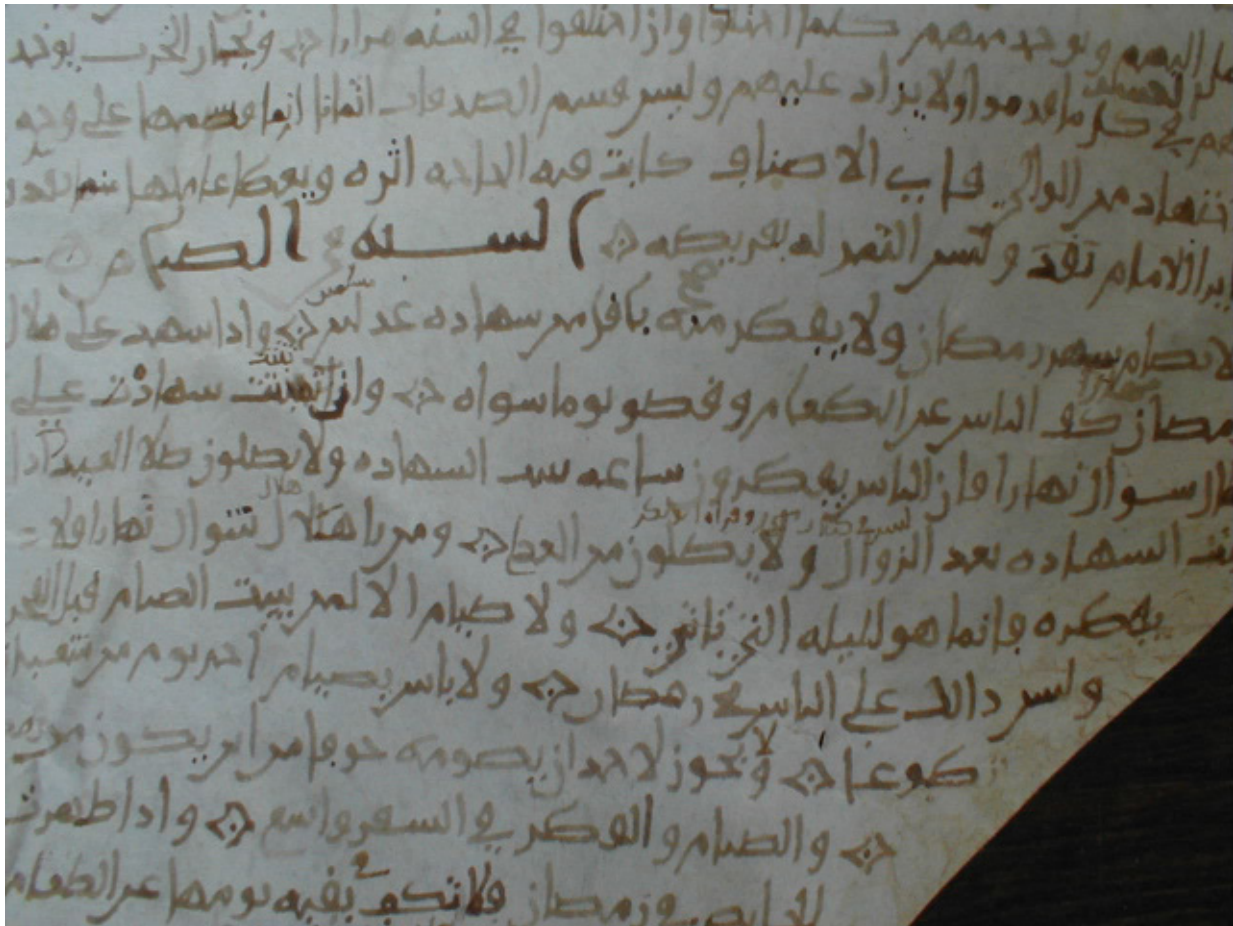 اليهم ويوخذ منهم كلما اختلفوا وان اختلفوا في السنه مرارا وتجار الحرب يوخذ
في كل ما قدموا ولا يزاد عليهم وليس قسم الصدقات اثمانا انما قسمها على وجه
اجتهاد من الوالي فاي الاصناف كانت فيه الحاجه اثره ويعطا عاملها
الامام ثقة وليس الثمن له بفريضه السنه في الصيام
لا يصام شهر رمضان ولا يفطر منه باقل من شهاده عدلين مسلمين واذا شهد على هلال
رمضان نهارا كف الناس عن الطعام وقضو يوما سواه وان ثبتت شهادت على
هلال شوال نهارا فان الناس يفطرون ساعه تثبت الشهاده ولا يصلون صلاه العيد اذا
الشهاده بعد الزوال ولا يصلون من الغد ومن راا هلال شوال نهارا فلا
يفطره فانما هو لليله التي تاتي ولا صيام الا لمن يبيت الصيام قبل الفجر
وليس ذالك على الناس في رمضان ولا باس بصيام اخر يوم من شعبان
طوعا ولا يجوز لاحد ان يصومه خوفا من ان يكون من
والصيام والفطر في السفر واسع واذا طهرت
الحايض في رمضان فلا تكف بقيه يومها عن الطعام